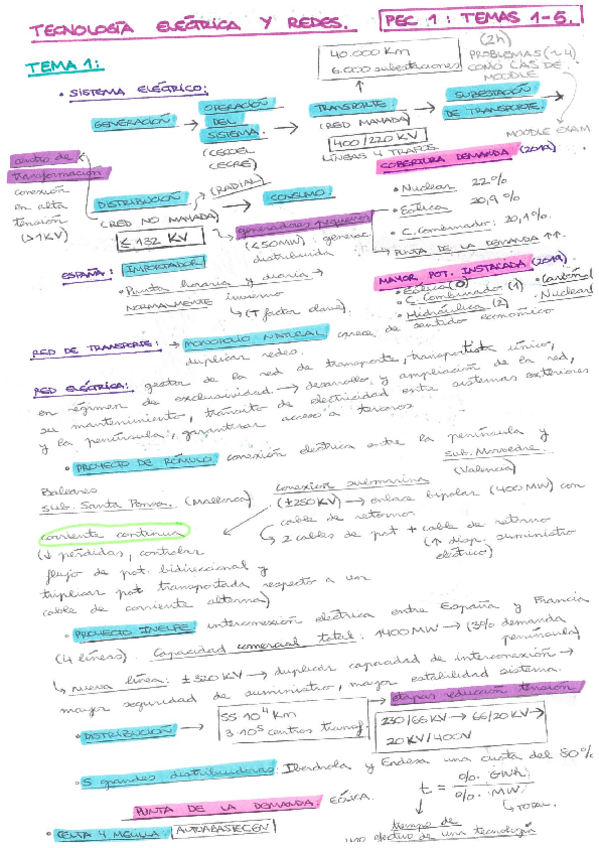 TECNOLOGÍA ELÉCTRICA Y REDES. PEC 1: TEMAS 1-5.
(2h)
PROBLEMAS (~4)
COMO LAS DE
MOODLE
MOODLE EXAM
TEMA 1:
40.000 Km
6.000 subestaciones
• SISTEMA ELÉCTRICO:
GENERACIÓN → OPERACIÓN DEL SISTEMA. → TRANSPORTE → SUBESTACIÓN DE TRANSPORTE.
(CECOEL
CECRE)
(RED MALLADA)
400/220 KV
LÍNEAS Y TRAFOS
centro de
transformación
conexión
en alta
tensión
(>1KV)
DISTRIBUCIÓN → CONSUMO
(RADIAL)
(RED NO MALLADA)
≤ 132 KV
generadores pequeños
(<50MW): generac.
distribuida
COBERTURA DEMANDA (2019)
• Nuclear 22%
• Eólica 20,9%
• C. Combinado: 20,1%.
PUNTA DE LA DEMANDA ↑↑.
ESPAÑA: IMPORTADOR
• Punta horaria y diaria →
NORMALMENTE invierno
↳ (T factor clave).
MAYOR POT. INSTALADA (2019)
• Eólica (0) • Carbón
• C. Combinado (1) • Nuclear
• Hidráulica (2)
RED DE TRANSPORTE: → MONOPOLIO NATURAL carece de sentido económico
duplicar redes.
RED ELÉCTRICA: gestor de la red de transporte, transportista único,
en régimen de exclusividad. → desarrollo y ampliación de la red,
su mantenimiento, tránsito de electricidad entre sistemas exteriores
y la península, garantizar acceso a terceros
• PROYECTO DE RÓMULO: conexión eléctrica entre la península y
Baleares
sub. Santa Ponsa. (Mallorca)
conexión submarina
(±250KV) → enlace bipolar (400MW) con
cable de retorno.
sub. Morvedre.
(Valencia)
↳ 2 cables de pot + cable de retorno
(↑ disp. suministro
eléctrico)
corriente continua
(↓ pérdidas, controlar
flujo de pot. bidireccional y
triplicar pot transportada respecto a un
cable de corriente alterna)
• PROYECTO INELFE: interconexión eléctrica entre España y Francia
(4 líneas). Capacidad comercial total: 1400MW → (3% demanda
península)
↳ nueva línea: ±320KV → duplicar capacidad de interconexión →
mayor seguridad de suministro, mayor estabilidad sistema.
• DISTRIBUCIÓN →
55·10⁴ Km
3·10⁵ centros transf.
etapas reducción tensión
230/66KV → 66/20KV →
20KV/400V
• 5 grandes distribuidoras: Iberdrola y Endesa una cuota del 80%
PUNTA DE LA DEMANDA: EÓLICA.
t = %. GWh / %. MW
↳ TOTAL.
• CEUTA Y MELILLA: AUTOABASTECEN
tiempo de
uso efectivo de una tecnología